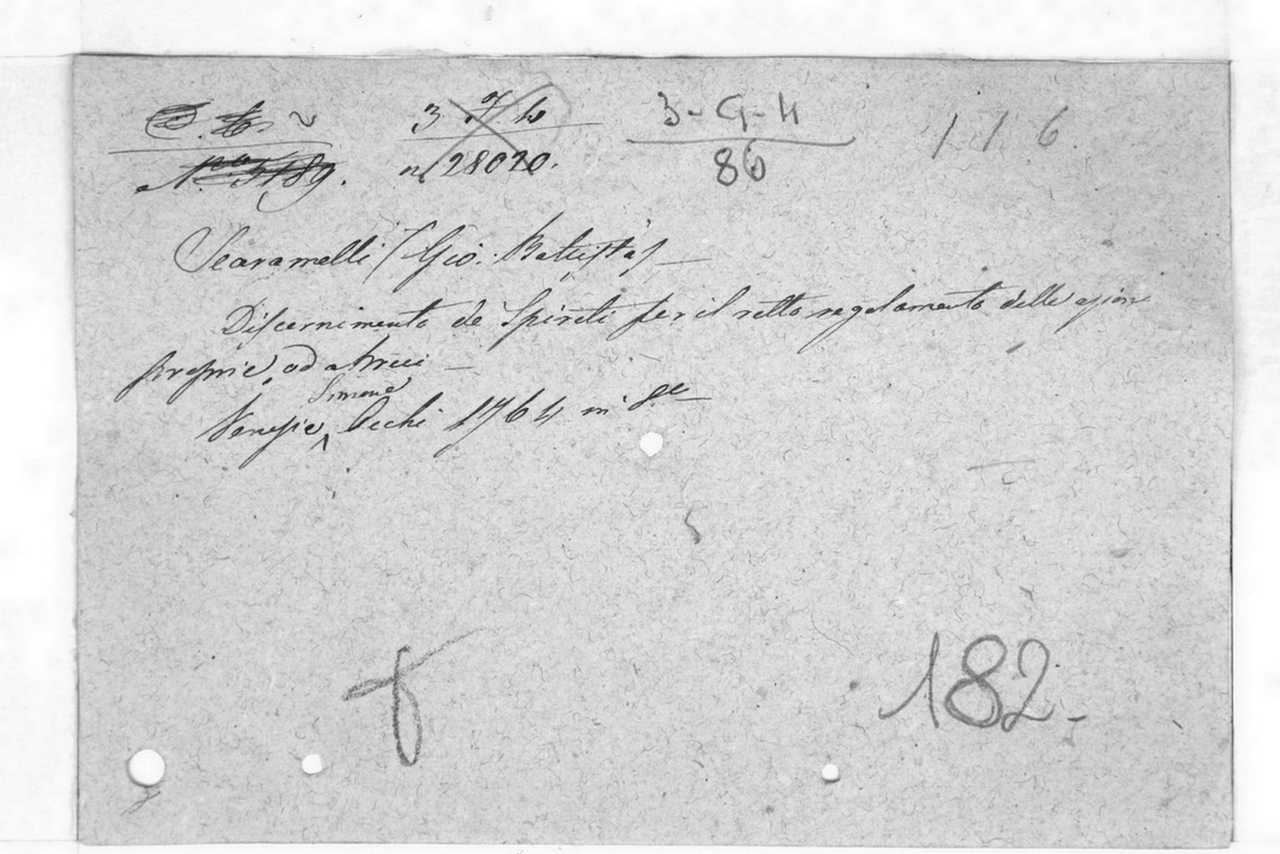 3 7 6 3-G-4 116
N.º 5189. n. 28020. 86
Scaramelli (Gio: Battista)
Discernimento de Spiriti per il retto regolamento delle azion
proprie, ed altrui
Simone
Venezia Occhi 1764 in 8.º
182-